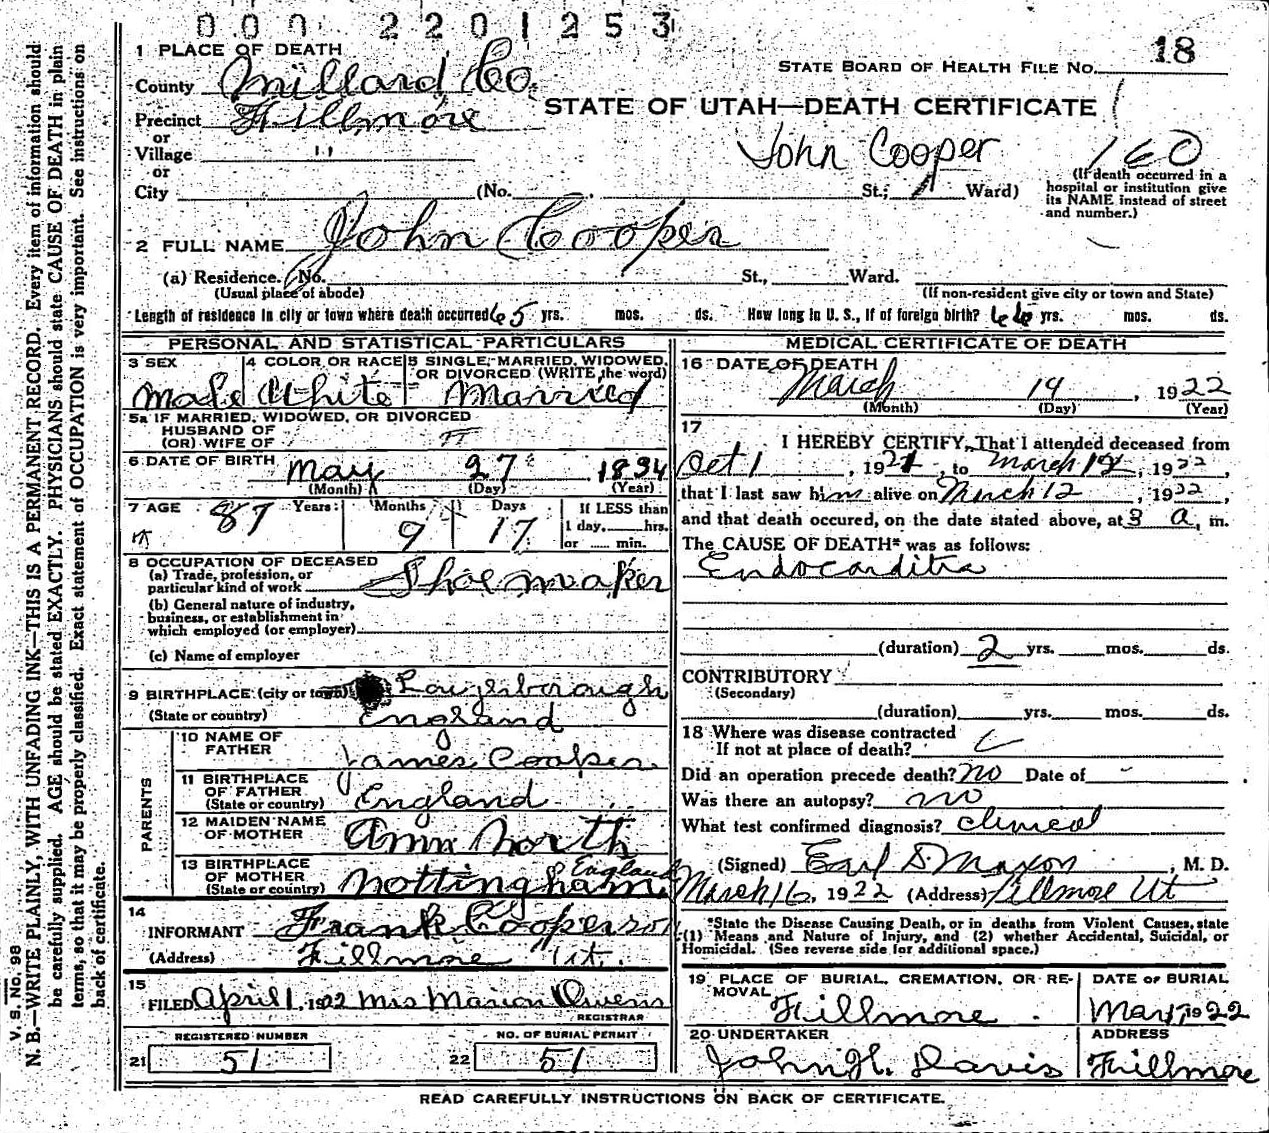 000 2201253
18
STATE BOARD OF HEALTH FILE NO.
1 PLACE OF DEATH
County Millard Co.
STATE OF UTAH—DEATH CERTIFICATE
Precinct Fillmore
or
Village "
or
City (No. St.; Ward)
John Cooper
160
(If death occurred in a
hospital or institution give
its NAME instead of street
and number.)
2 FULL NAME John Cooper
(a) Residence. No. St., Ward.
(Usual place of abode) (If non-resident give city or town and State)
Length of residence in city or town where death occurred 65 yrs. mos. ds. How long in U. S., if of foreign birth? 66 yrs. mos. ds.
PERSONAL AND STATISTICAL PARTICULARS
3 SEX 4 COLOR OR RACE 5 SINGLE, MARRIED, WIDOWED,
OR DIVORCED (WRITE the word)
Male White Married
5a IF MARRIED, WIDOWED, OR DIVORCED
HUSBAND OF
(OR) WIFE OF
6 DATE OF BIRTH May 27 1834
(Month) (Day) (Year)
7 AGE 87 Years Months 9 Days 17 If LESS than
1 day, hrs.
or min.
8 OCCUPATION OF DECEASED
(a) Trade, profession, or
particular kind of work Shoemaker
(b) General nature of industry,
business, or establishment in
which employed (or employer)
(c) Name of employer
9 BIRTHPLACE (city or town) Loughborough
(State or country) England
PARENTS
10 NAME OF
FATHER James Cooper
11 BIRTHPLACE
OF FATHER
(State or country) England
12 MAIDEN NAME
OF MOTHER Ann North
13 BIRTHPLACE
OF MOTHER
(State or country) Nottingham, England
14
INFORMANT Frank Cooper son
(Address) Fillmore Ut.
15
FILED April 1, 1922 Mrs Marion Owens
REGISTRAR
REGISTERED NUMBER NO. OF BURIAL PERMIT
21 51 22 51
MEDICAL CERTIFICATE OF DEATH
16 DATE OF DEATH
March 14, 1922
(Month) (Day) (Year)
17
I HEREBY CERTIFY, That I attended deceased from
Oct 1, 1921, to March 12, 1922,
that I last saw him alive on March 12, 1922,
and that death occured, on the date stated above, at 3 a. m.
The CAUSE OF DEATH* was as follows:
Endocarditis
(duration) 2 yrs. mos. ds.
CONTRIBUTORY
(Secondary)
(duration) yrs. mos. ds.
18 Where was disease contracted
If not at place of death?
Did an operation precede death? no Date of -
Was there an autopsy? no
What test confirmed diagnosis? Clinical
(Signed) Earl S. Maxon, M. D.
March 16, 1922 (Address) Fillmore Ut
*State the Disease Causing Death, or in deaths from Violent Causes, state
(1) Means and Nature of Injury, and (2) whether Accidental, Suicidal, or
Homicidal. (See reverse side for additional space.)
19 PLACE OF BURIAL, CREMATION, OR RE-
MOVAL DATE OF BURIAL
Fillmore. Mar 17 1922
20 UNDERTAKER ADDRESS
John H. Davis Fillmore
READ CAREFULLY INSTRUCTIONS ON BACK OF CERTIFICATE.
V. S. No. 98
N. B.—WRITE PLAINLY, WITH UNFADING INK—THIS IS A PERMANENT RECORD. Every item of information should
be carefully supplied. AGE should be stated EXACTLY. PHYSICIANS should state CAUSE OF DEATH in plain
terms, so that it may be properly classified. Exact statement of OCCUPATION is very important. See instructions on
back of certificate.